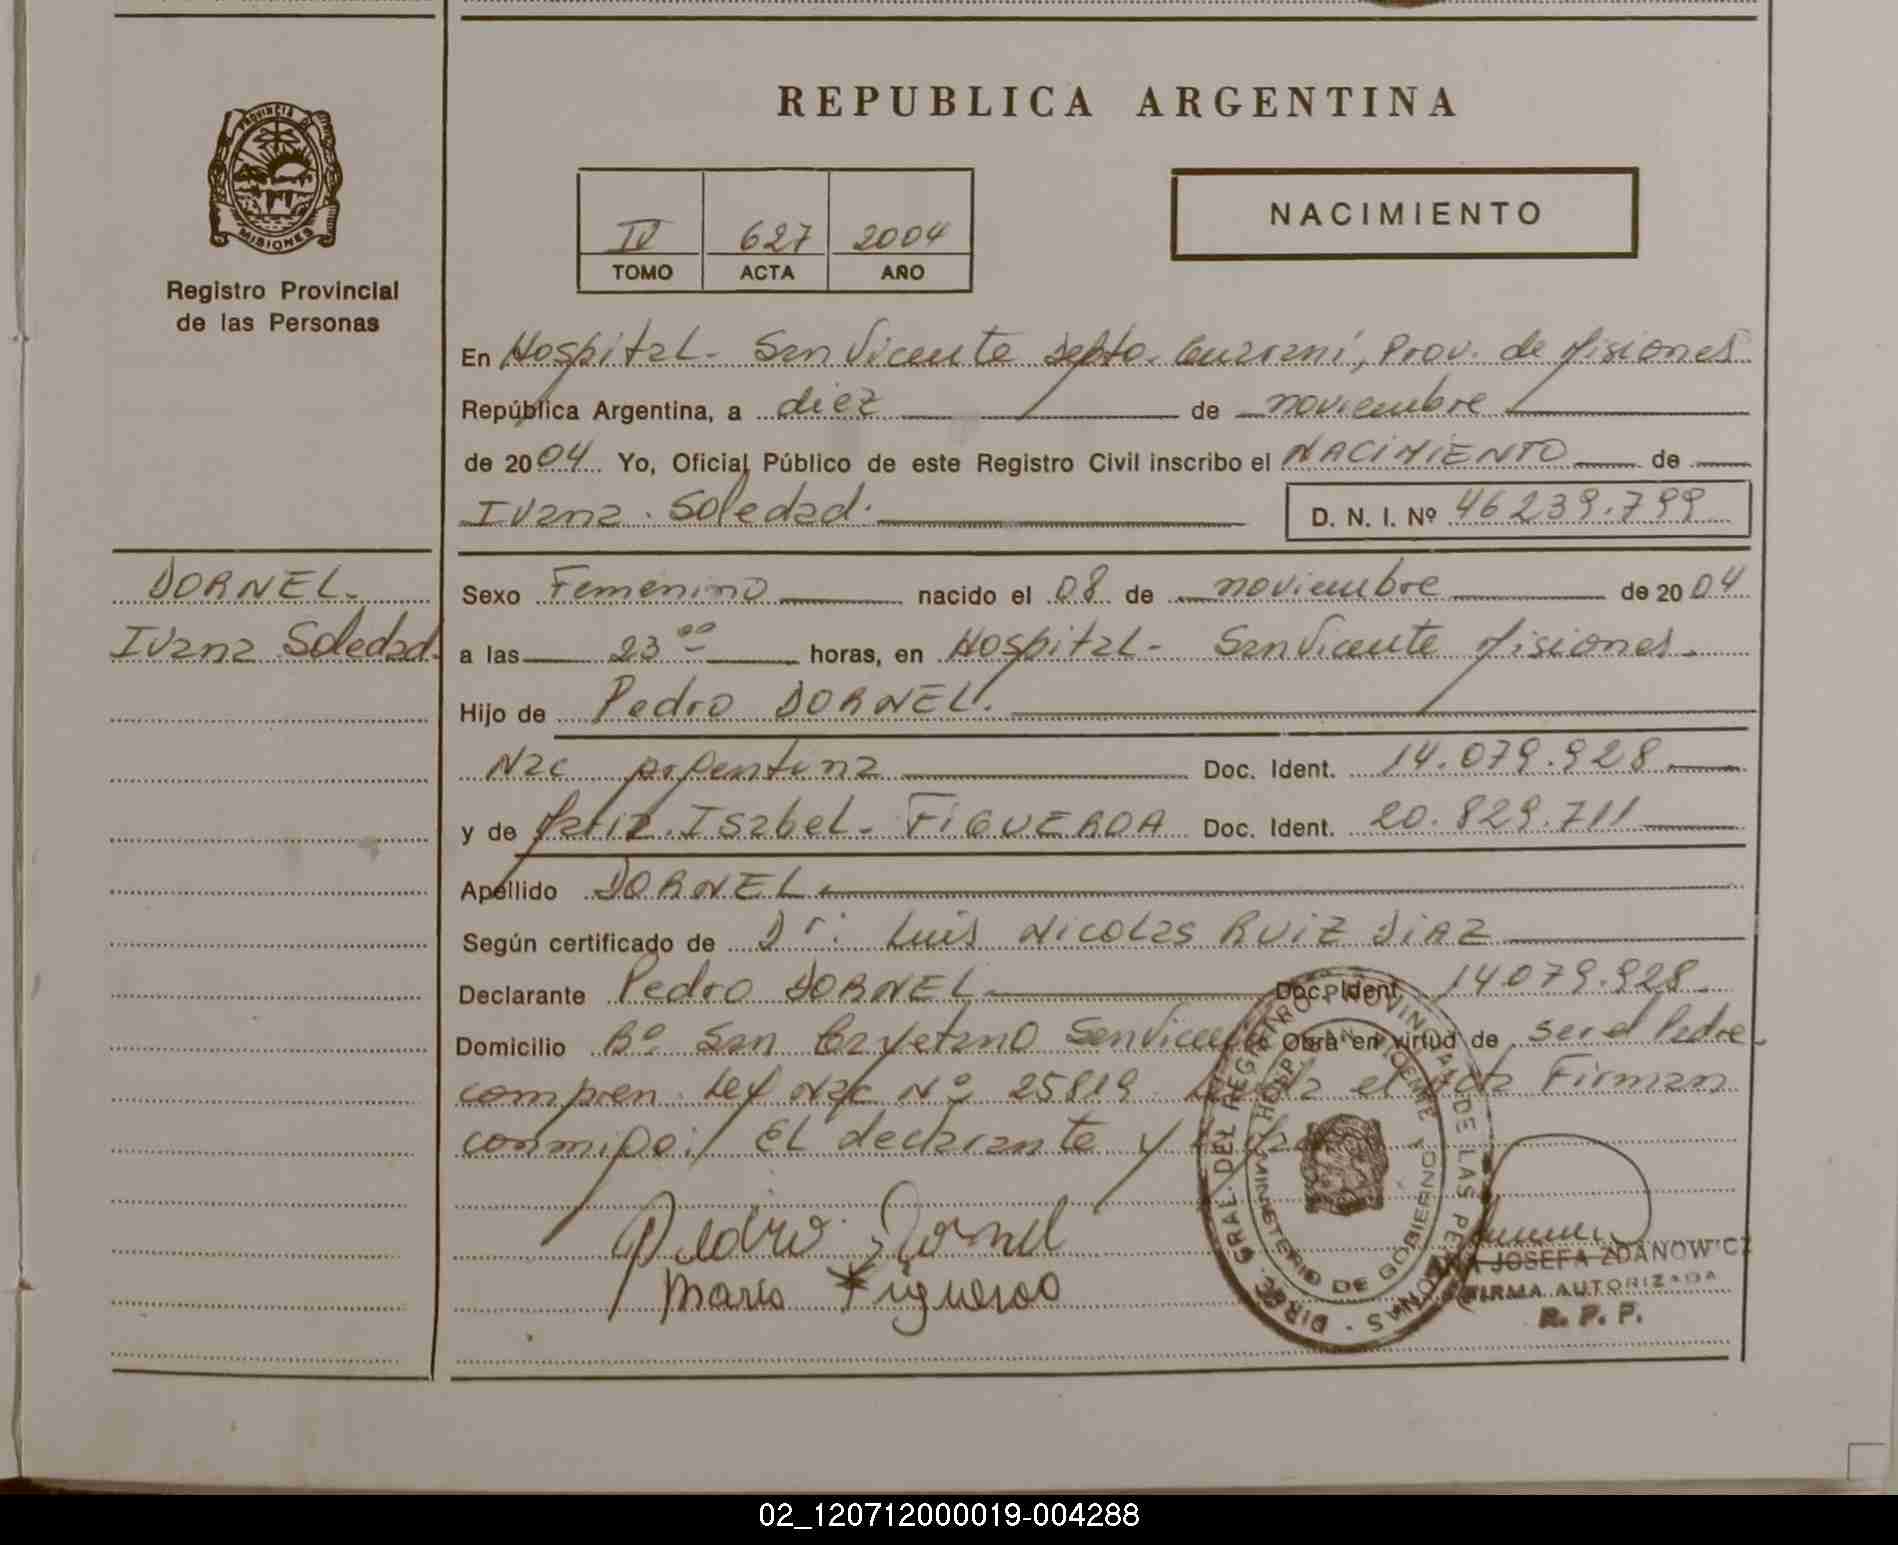 REPUBLICA ARGENTINA
PROVINCIA DE
MISIONES
Registro Provincial
de las Personas
IV 627 2004
TOMO ACTA AÑO
NACIMIENTO
En Hospital - San Vicente Depto. Guaraní, Prov. de Misiones
República Argentina, a diez de noviembre
de 2004 Yo, Oficial Público de este Registro Civil inscribo el NACIMIENTO de
Ivana Soledad. D. N. I. Nº 46239.799
DORNEL.
Ivana Soledad.
Sexo Femenino nacido el 08 de noviembre de 2004
a las 23 00 horas, en Hospital - San Vicente Misiones.
Hijo de Pedro DORNEL.
Nac argentina Doc. Ident. 14.079.928
y de María Isabel - FIGUEROA Doc. Ident. 20.829.711
Apellido DORNEL
Según certificado de Dr: Luis Nicolas RUIZ DIAZ
Declarante Pedro DORNEL Doc. Ident. 14.079.928
Domicilio Bº San Cayetano San Vicente Obra en virtud de ser el Padre
compren. Ley Nac Nº 25819. el Acta Firman
conmigo: El declarante y
Pedro Dornel
Maria Figueroa
DIREC. GRAL DEL REGISTRO PROVINCIAL DE LAS PERSONAS
MINISTERIO DE GOBIERNO
JOSEFA ZDANOWICZ
FIRMA AUTORIZADA
R. P. P.
02_120712000019-004288